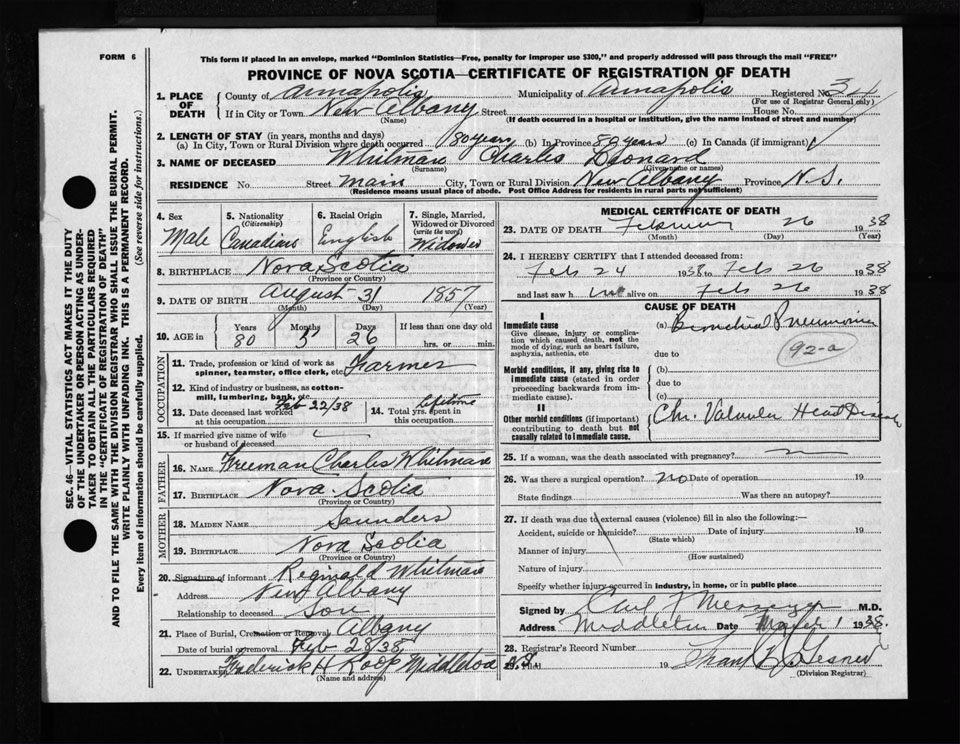 FORM 6
This form if placed in an envelope, marked "Dominion Statistics—Free, penalty for improper use $300," and properly addressed will pass through the mail "FREE"
PROVINCE OF NOVA SCOTIA—CERTIFICATE OF REGISTRATION OF DEATH
1. PLACE OF DEATH
County of Annapolis Municipality of Annapolis Registered No. 34
(For use of Registrar General only)
If in City or Town New Albany Street House No.
(Name) (If death occurred in a hospital or institution, give the name instead of street and number)
2. LENGTH OF STAY (in years, months and days)
(a) In City, Town or Rural Division where death occurred 80 years (b) In Province 80 years (c) In Canada (if immigrant)
3. NAME OF DECEASED Whitman Charles Leonard
(Surname) (Given name or names)
RESIDENCE No. Street Main City, Town or Rural Division New Albany Province N.S.
(Residence means usual place of abode. Post Office Address for residents in rural parts not sufficient)
4. Sex
Male
5. Nationality
(Citizenship)
Canadian
6. Racial Origin
English
7. Single, Married, Widowed or Divorced
(write the word)
Widower
8. BIRTHPLACE Nova Scotia
(Province or Country)
9. DATE OF BIRTH August 31 1857
(Month) (Day) (Year)
10. AGE in
Years Months Days If less than one day old
80 5 26 hrs. or min.
OCCUPATION
11. Trade, profession or kind of work as spinner, teamster, office clerk, etc. Farmer
12. Kind of industry or business, as cotton-mill, lumbering, bank, etc.
13. Date deceased last worked at this occupation Feb 22/38
14. Total yrs. spent in this occupation lifetime
15. If married give name of wife or husband of deceased
FATHER
16. NAME Freeman Charles Whitman
17. BIRTHPLACE Nova Scotia
MOTHER
18. MAIDEN NAME Saunders
19. BIRTHPLACE Nova Scotia
(Province or Country)
20. Signature of informant Reginald Whitman
Address New Albany
Relationship to deceased Son
21. Place of Burial, Cremation or Removal Albany
Date of burial or removal Feb 28/38
22. UNDERTAKER Frederick H Roop Middleton N.S.
(Name and address)
MEDICAL CERTIFICATE OF DEATH
23. DATE OF DEATH February 26 1938
(Month) (Day) (Year)
24. I HEREBY CERTIFY that I attended deceased from:
Feb 24 1938 to Feb 26 1938
and last saw h im alive on Feb 26 1938
CAUSE OF DEATH
I
Immediate cause
Give disease, injury or complication which caused death, not the mode of dying, such as heart failure, asphyxia, asthenia, etc
(a) Bronchial Pneumonia
92-a
due to
Morbid conditions, if any, giving rise to immediate cause (stated in order proceeding backwards from immediate cause).
(b)
due to
(c)
II
Other morbid conditions (if important) contributing to death but not causally related to immediate cause.
Chr. Valvular Heart Disease
25. If a woman, was the death associated with pregnancy?
26. Was there a surgical operation? no Date of operation 19
State findings Was there an autopsy?
27. If death was due to external causes (violence) fill in also the following:—
Accident, suicide or homicide? Date of injury 19
(State which)
Manner of injury
(How sustained)
Nature of injury
Specify whether injury occurred in industry, in home, or in public place
Signed by M.D.
Address Middleton Date 1 1938.
28. Registrar's Record Number
19
(Division Registrar)
SEC. 46—VITAL STATISTICS ACT MAKES IT THE DUTY OF THE UNDERTAKER OR PERSON ACTING AS UNDERTAKER TO OBTAIN ALL THE PARTICULARS REQUIRED IN THE "CERTIFICATE OF REGISTRATION OF DEATH" AND TO FILE THE SAME WITH THE DIVISION REGISTRAR WHO SHALL ISSUE THE BURIAL PERMIT.
WRITE PLAINLY WITH UNFADING INK. THIS IS A PERMANENT RECORD.
Every item of information should be carefully supplied. (See reverse side for instructions.)